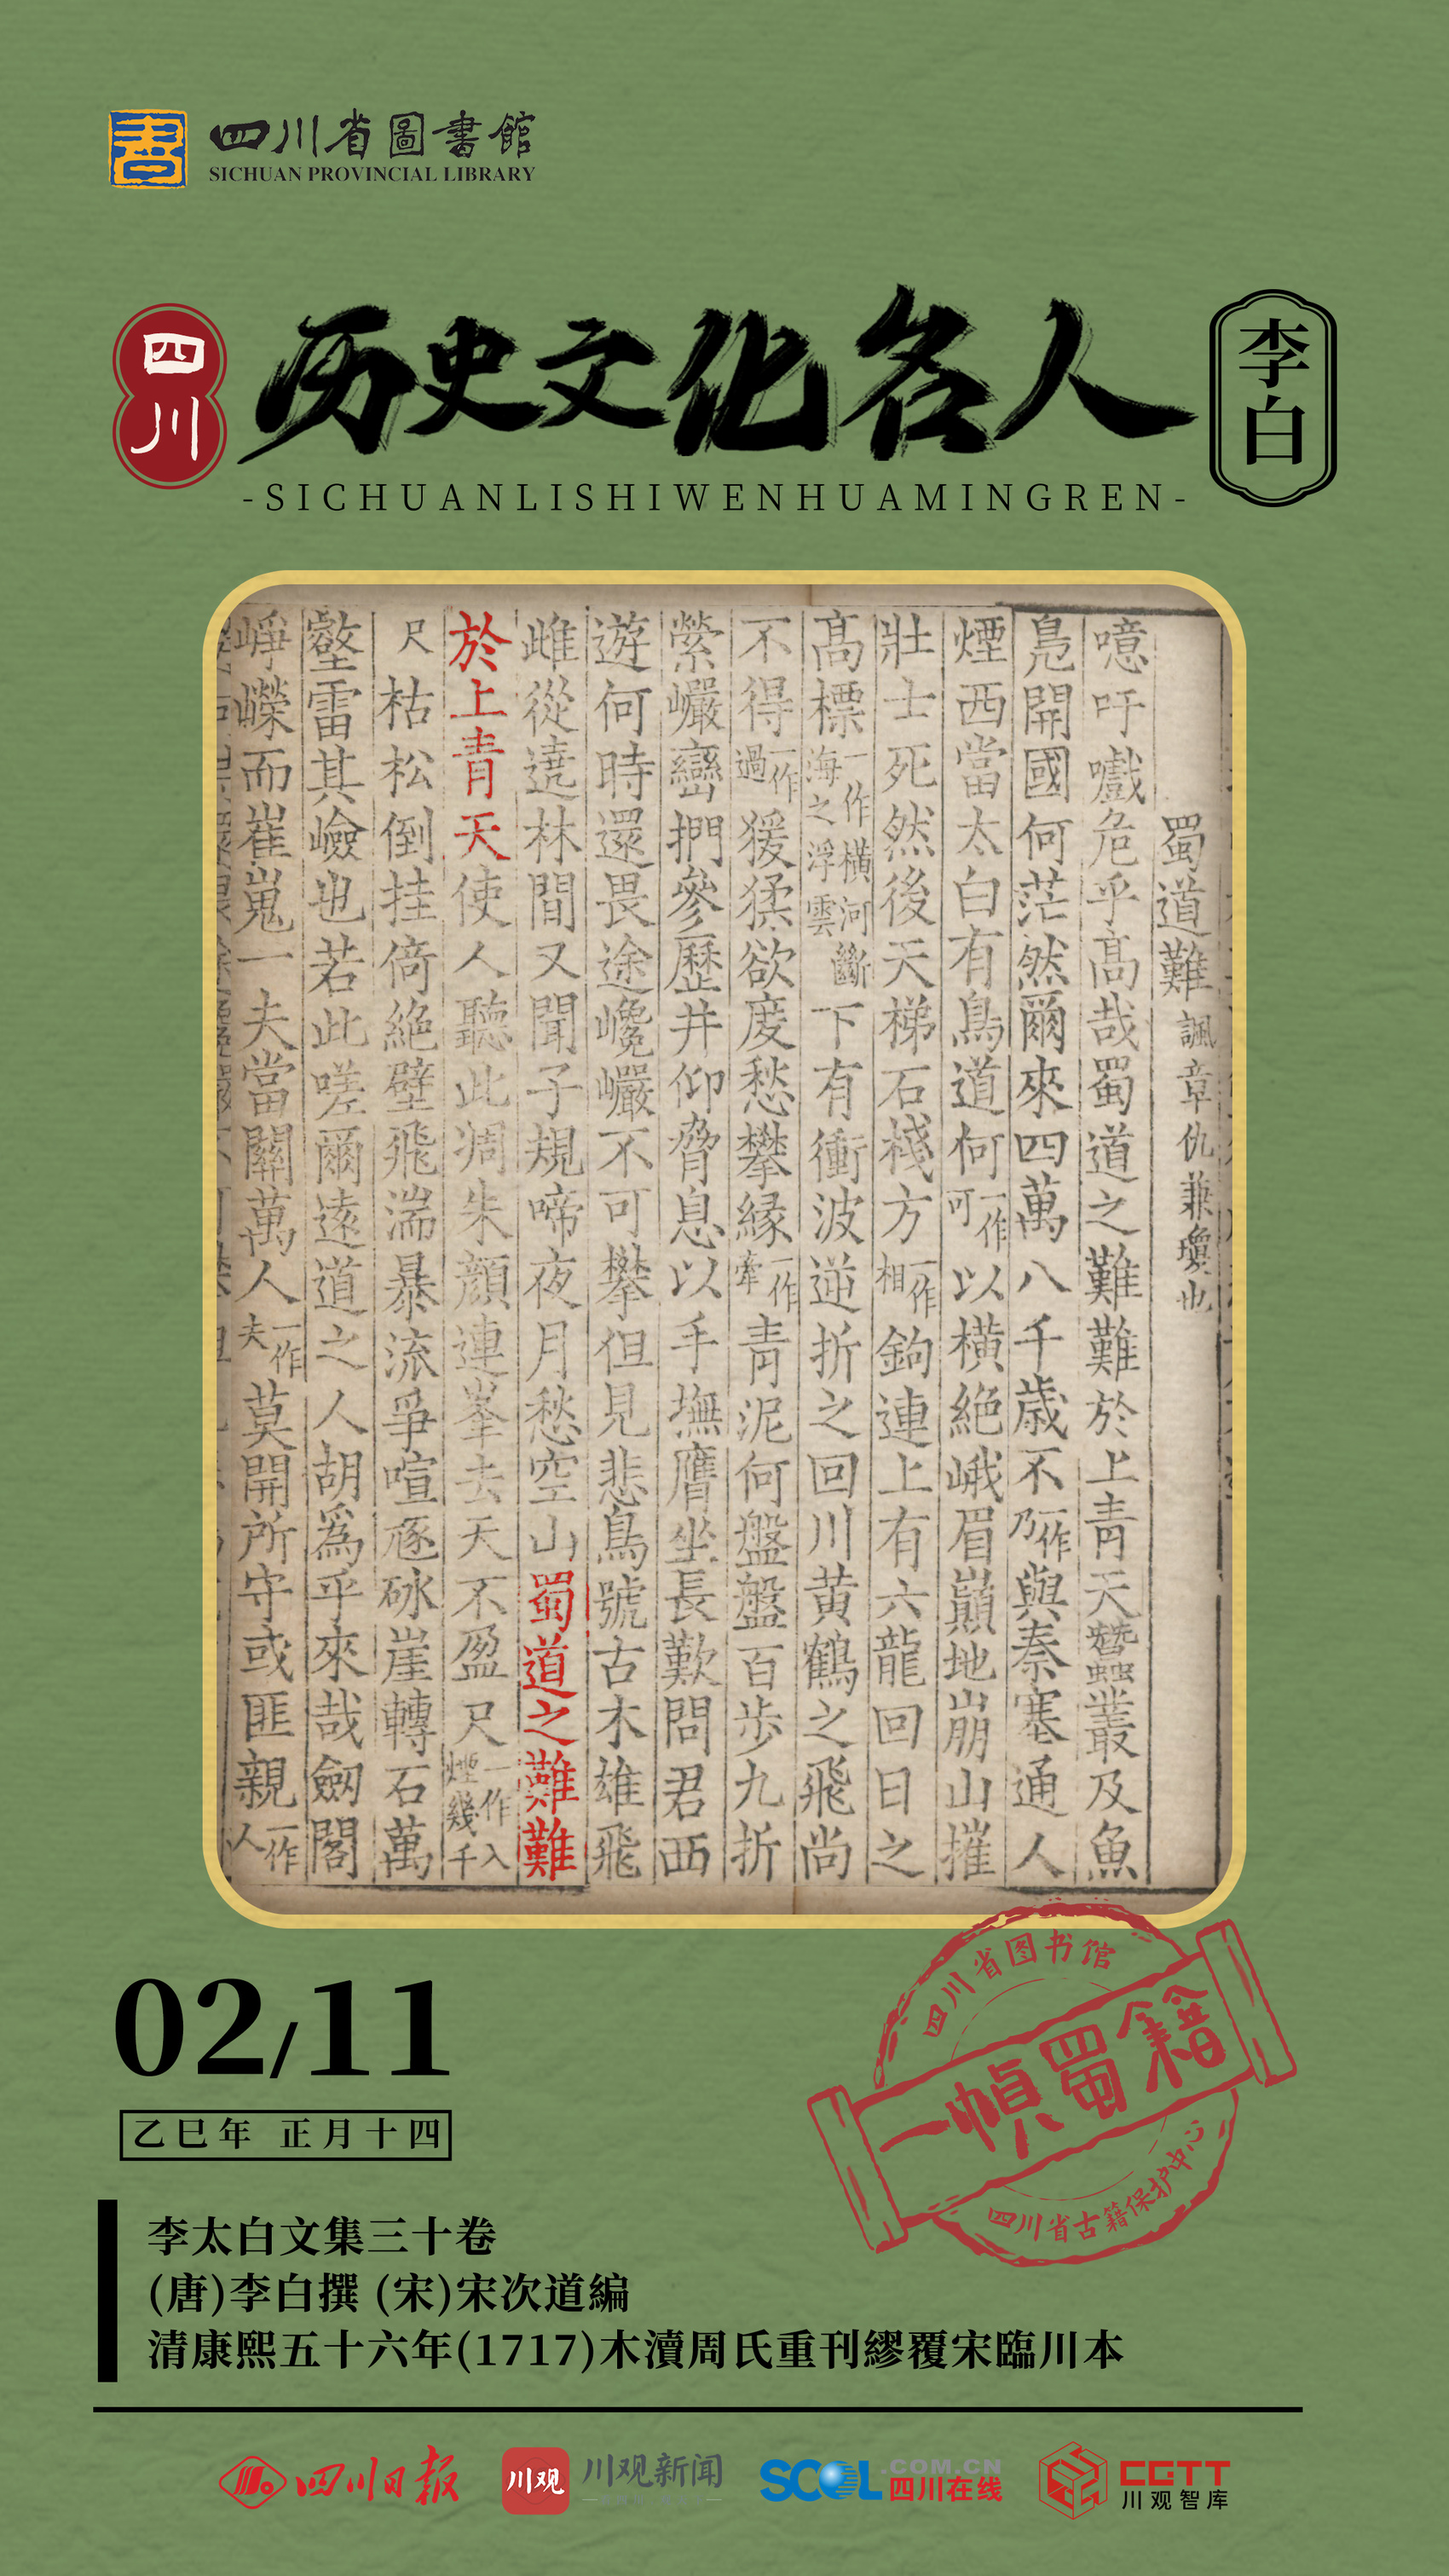 書
四川省圖書館
SICHUAN PROVINCIAL LIBRARY
四川
历史文化名人
李白
-SICHUANLISHIWENHUAMINGREN-
蜀道難 諷章仇兼瓊也
噫吁嚱危乎髙哉蜀道之難難於上青天蠶叢及魚
鳧開國何茫然爾來四萬八千歲不一作乃與秦塞通人
煙西當太白有鳥道何一作可以橫絶峨眉巔地崩山摧
壯士死然後天梯石棧方一作相鉤連上有六龍回日之
髙標一作橫河斷海之浮雲下有衝波逆折之回川黃鶴之飛尚
不得一作過猨猱欲度愁攀緣一作牽青泥何盤盤百步九折
縈巖巒捫參歷井仰脅息以手撫膺坐長歎問君西
遊何時還畏途巉巖不可攀但見悲鳥號古木雄飛
雌從遶林間又聞子規啼夜月愁空山蜀道之難難
於上青天使人聽此凋朱顔連峯去天不盈尺一作入煙幾千
尺枯松倒挂倚絶壁飛湍暴流爭喧豗砅崖轉石萬
壑雷其嶮也若此嗟爾遠道之人胡爲乎來哉劒閣
崢嶸而崔嵬一夫當關萬人一作夫莫開所守或匪親一作人
02/11
乙巳年 正月十四
四川省图书馆
一幀蜀籍
四川省古籍保护中心
李太白文集三十卷
(唐)李白撰 (宋)宋次道編
清康熙五十六年(1717)木瀆周氏重刊繆覆宋臨川本
四川日报
川观 川观新闻
SCOL.COM.CN
四川在线
CGTT
川观智库